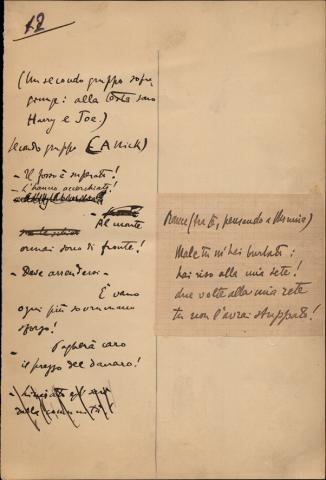 12
(Un secondo gruppo soprag-
giunge: alla testa sono
Harry e Joe.)
Secondo gruppo (A Nick)
- Il fosso è superato!
- L'hanno accerchiato!
- Al monte
ormai sono di fronte!
- Deve arrendersi -
È vano
ogni più sovrumano
sforzo!
- Pagherà caro
il prezzo del danaro!
della comunità
Rance (fra sé, pensando a Minnie)
Male tu m'hai burlato:
hai riso alla mia sete!
due volte alla mia rete
tu non l'avrai strappato!